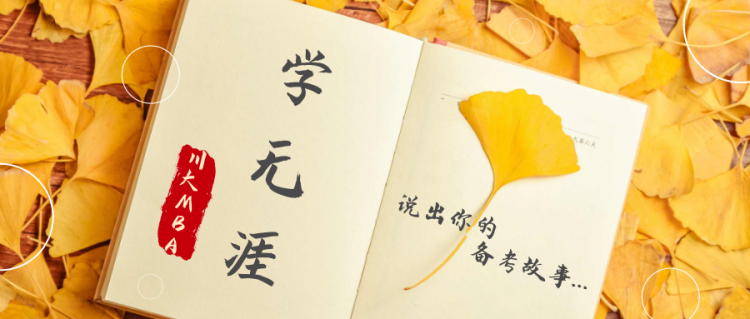 学无涯
川大MBA
说出你的
备考故事...